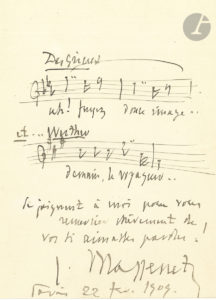 Des Grieux
ah! fuyez douce image..
et... Werther
demain, le voyageur..
se joignent à moi pour vous
remercier vivement de
vos si aimables paroles!
J. Massenet
Paris 22 fév. 1909.